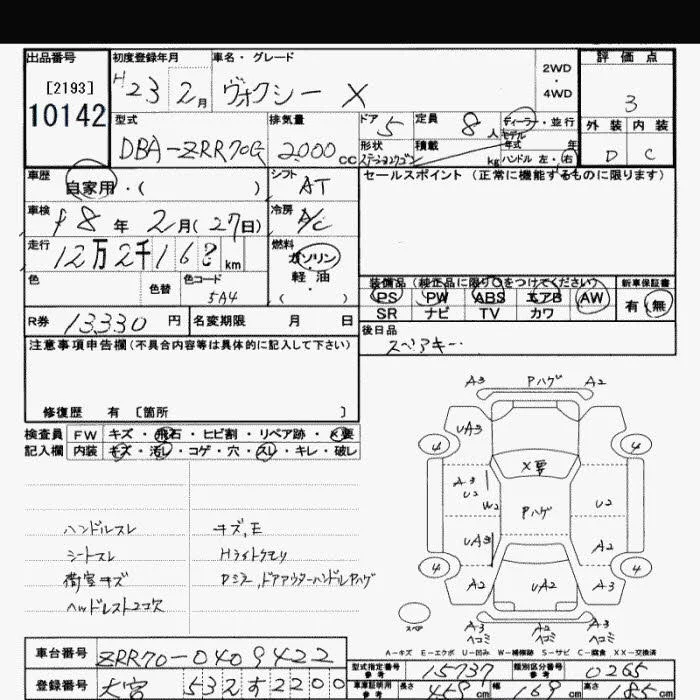 出品番号 初度登録年月 車名・グレード 2WD 評価点
[2193] H 23 2月 ヴォクシー X 4WD 3
10142 型式 排気量 ドア 5 定員 8人 ディーラー・並行 外装 内装
DBA-ZRR70G 2000cc 形状 ステーションワゴン 積載 kg モデル年式 年 ハンドル 左・右 D C
車歴 自家用・( ) シフト AT セールスポイント(正常に機能するものに限ります)
車検 8年 2月(27日) 冷房 A/C
走行 12万2千16 km 燃料 ガソリン
軽・油
色 色替 色コード 5A4 ( ) 装備品(純正品に限り○をつけてください) 新車保証書
PS PW ABS エアB AW 有・無
R券 13330円 名変期限 月 日 SR ナビ TV カワ
注意事項申告欄(不具合内容等は具体的に記入して下さい) 後日品
スペアキー
修復歴 有 〔箇所 〕
検査員 FW キズ・飛石・ヒビ割・リペア跡・X要
記入欄 内装 キズ・汚レ・コゲ・穴・スレ・キレ・破レ
ハンドルスレ キズ、E
シートスレ Hライトクモリ
荷室キズ Dミラー、ドアアウターハンドルPハゲ
ヘッドレスト2コ欠
A3 Pハゲ A2
UA3
4 4
X要
A3
U2 W2 Pハゲ U2
UA3 A2
4 4
A2 UA2 A3
スペア
A3 A2 A3
ヘコミ ヘコミ ヘコミ
A-キズ E-エクボ U-凹み W-補修跡 S-サビ C-腐食 XX-交換済
車台番号 ZRR70-0409422 型式指定番号 参考 15737 類別区分番号 参考 0265
登録番号 大宮 532 す2200 車庫証明用 参考 長さ 459cm 幅 169cm 高さ 185cm